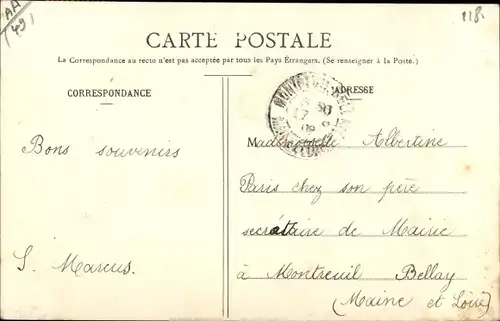 AA
(49)
118.
CARTE POSTALE
La Correspondance au recto n'est pas acceptée par tous les Pays Étrangers. (Se renseigner à la Poste.)
CORRESPONDANCE
ADRESSE
Bons souvenirs
S. Marcus.
Mademoiselle Albertine
Paris chez son père
secrétaire de Mairie
à Montreuil Bellay
(Maine et Loire)